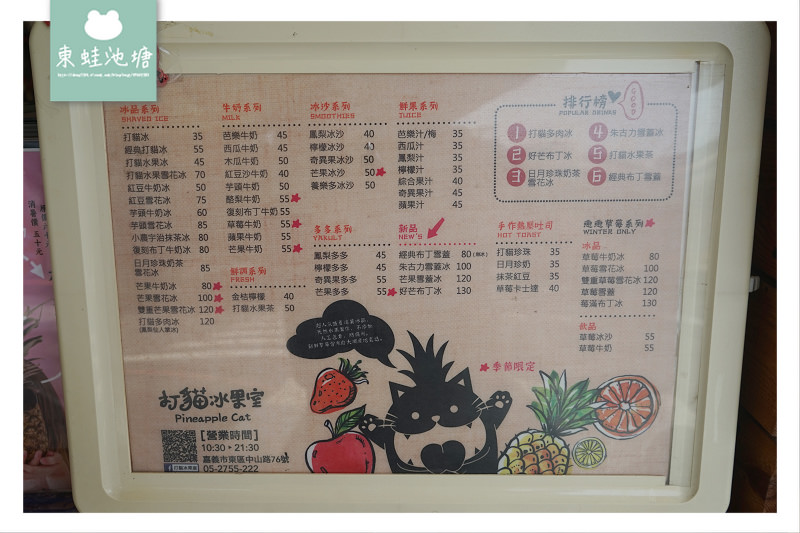 東蛙池塘
冰品系列
SHAVED ICE
打貓冰 35
經典打貓冰 55
打貓水果冰 45
打貓水果雪花冰 70
紅豆牛奶冰 50
紅豆雪花冰 75
芋頭牛奶冰 60
芋頭雪花冰 85
小農宇治抹茶冰 80
復刻布丁牛奶冰 80
日月珍珠奶茶
雪花冰 85
芒果牛奶冰 80
芒果雪花冰 100
雙重芒果雪花冰 120
打貓多肉冰 120
牛奶系列
MILK
芭樂牛奶 45
西瓜牛奶 45
木瓜牛奶 50
紅豆沙牛奶 40
芋頭牛奶 50
酪梨牛奶 55
復刻布丁牛奶 55
草莓牛奶 55
蘋果牛奶 55
芒果牛奶 55
鮮調系列
FRESH
金桔檸檬 40
打貓水果茶 50
冰沙系列
SMOOTHIES
鳳梨冰沙 40
檸檬冰沙 40
奇異果冰沙 50
芒果冰沙 50
養樂多冰沙 50
多多系列
YAKULT
鳳梨多多 45
檸檬多多 45
奇異果多多 55
芒果多多 55
鮮果系列
JUICE
芭樂汁/梅 35
西瓜汁 35
鳳梨汁 35
檸檬汁 35
綜合果汁 40
奇異果汁 45
蘋果汁 45
新品
NEW'S
經典布丁雪蓋 80
朱古力雪蓋冰 100
芒果雪蓋冰 120
好芒布丁冰 130
排行榜
POPULAR DRINKS
GOOD
1 打貓多肉冰
2 好芒布丁冰
3 日月珍珠奶茶
雪花冰
4 朱古力雪蓋冰
5 打貓水果茶
6 經典布丁雪蓋
手作熱壓吐司
HOT TOAST
打貓珍珠 35
日月珍奶 35
抹茶紅豆 35
草莓卡士達 40
戀戀草莓系列
WINTER ONLY
冰品
草莓牛奶冰 80
草莓雪花冰 100
雙重草莓雪花冰 120
草莓雪蓋 120
莓滿布丁冰 130
飲品
草莓冰沙 55
草莓牛奶 55
季節限定
打貓冰果室
Pineapple Cat
[營業時間]
10:30 - 21:30
嘉義市東區中山路76號
05-2755-222
打貓冰果室